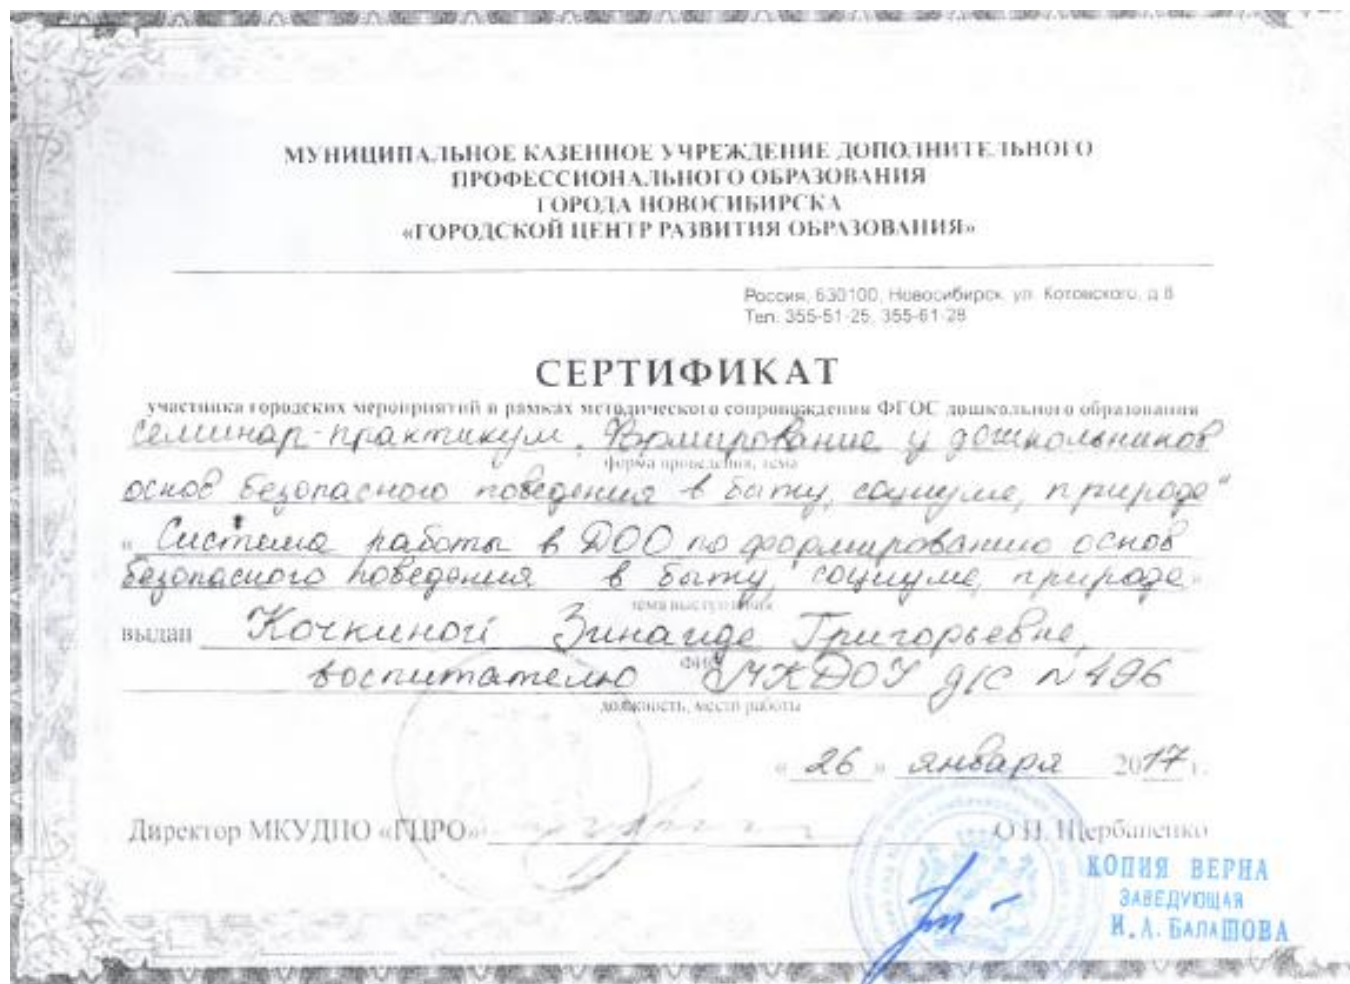 МУНИЦИПАЛЬНОЕ КАЗЕННОЕ УЧРЕЖДЕНИЕ ДОПОЛНИТЕЛЬНОГО
ПРОФЕССИОНАЛЬНОГО ОБРАЗОВАНИЯ
ГОРОДА НОВОСИБИРСКА
«ГОРОДСКОЙ ЦЕНТР РАЗВИТИЯ ОБРАЗОВАНИЯ»
Россия, 630100, Новосибирск, ул. Котовского, д.8
Тел. 355-51-25, 355-61-28
СЕРТИФИКАТ
участника городских мероприятий в рамках методического сопровождения ФГОС дошкольного образования
семинар-практикум „Формирование у дошкольников
форма проведения, тема
основ безопасного поведения в быту, социуме, природе“
„Система работы в ДОО по формированию основ
безопасного поведения в быту, социуме, природе“
тема выступления
выдан Кочкиной Зинаиде Григорьевне,
ФИО
воспитателю МКДОУ д/с №496
должность, место работы
« 26 » января 2017 г.
Директор МКУДПО «ГЦРО» О.Н. Щербаненко
КОПИЯ ВЕРНА
ЗАВЕДУЮЩАЯ
И.А. БАЛАШОВА